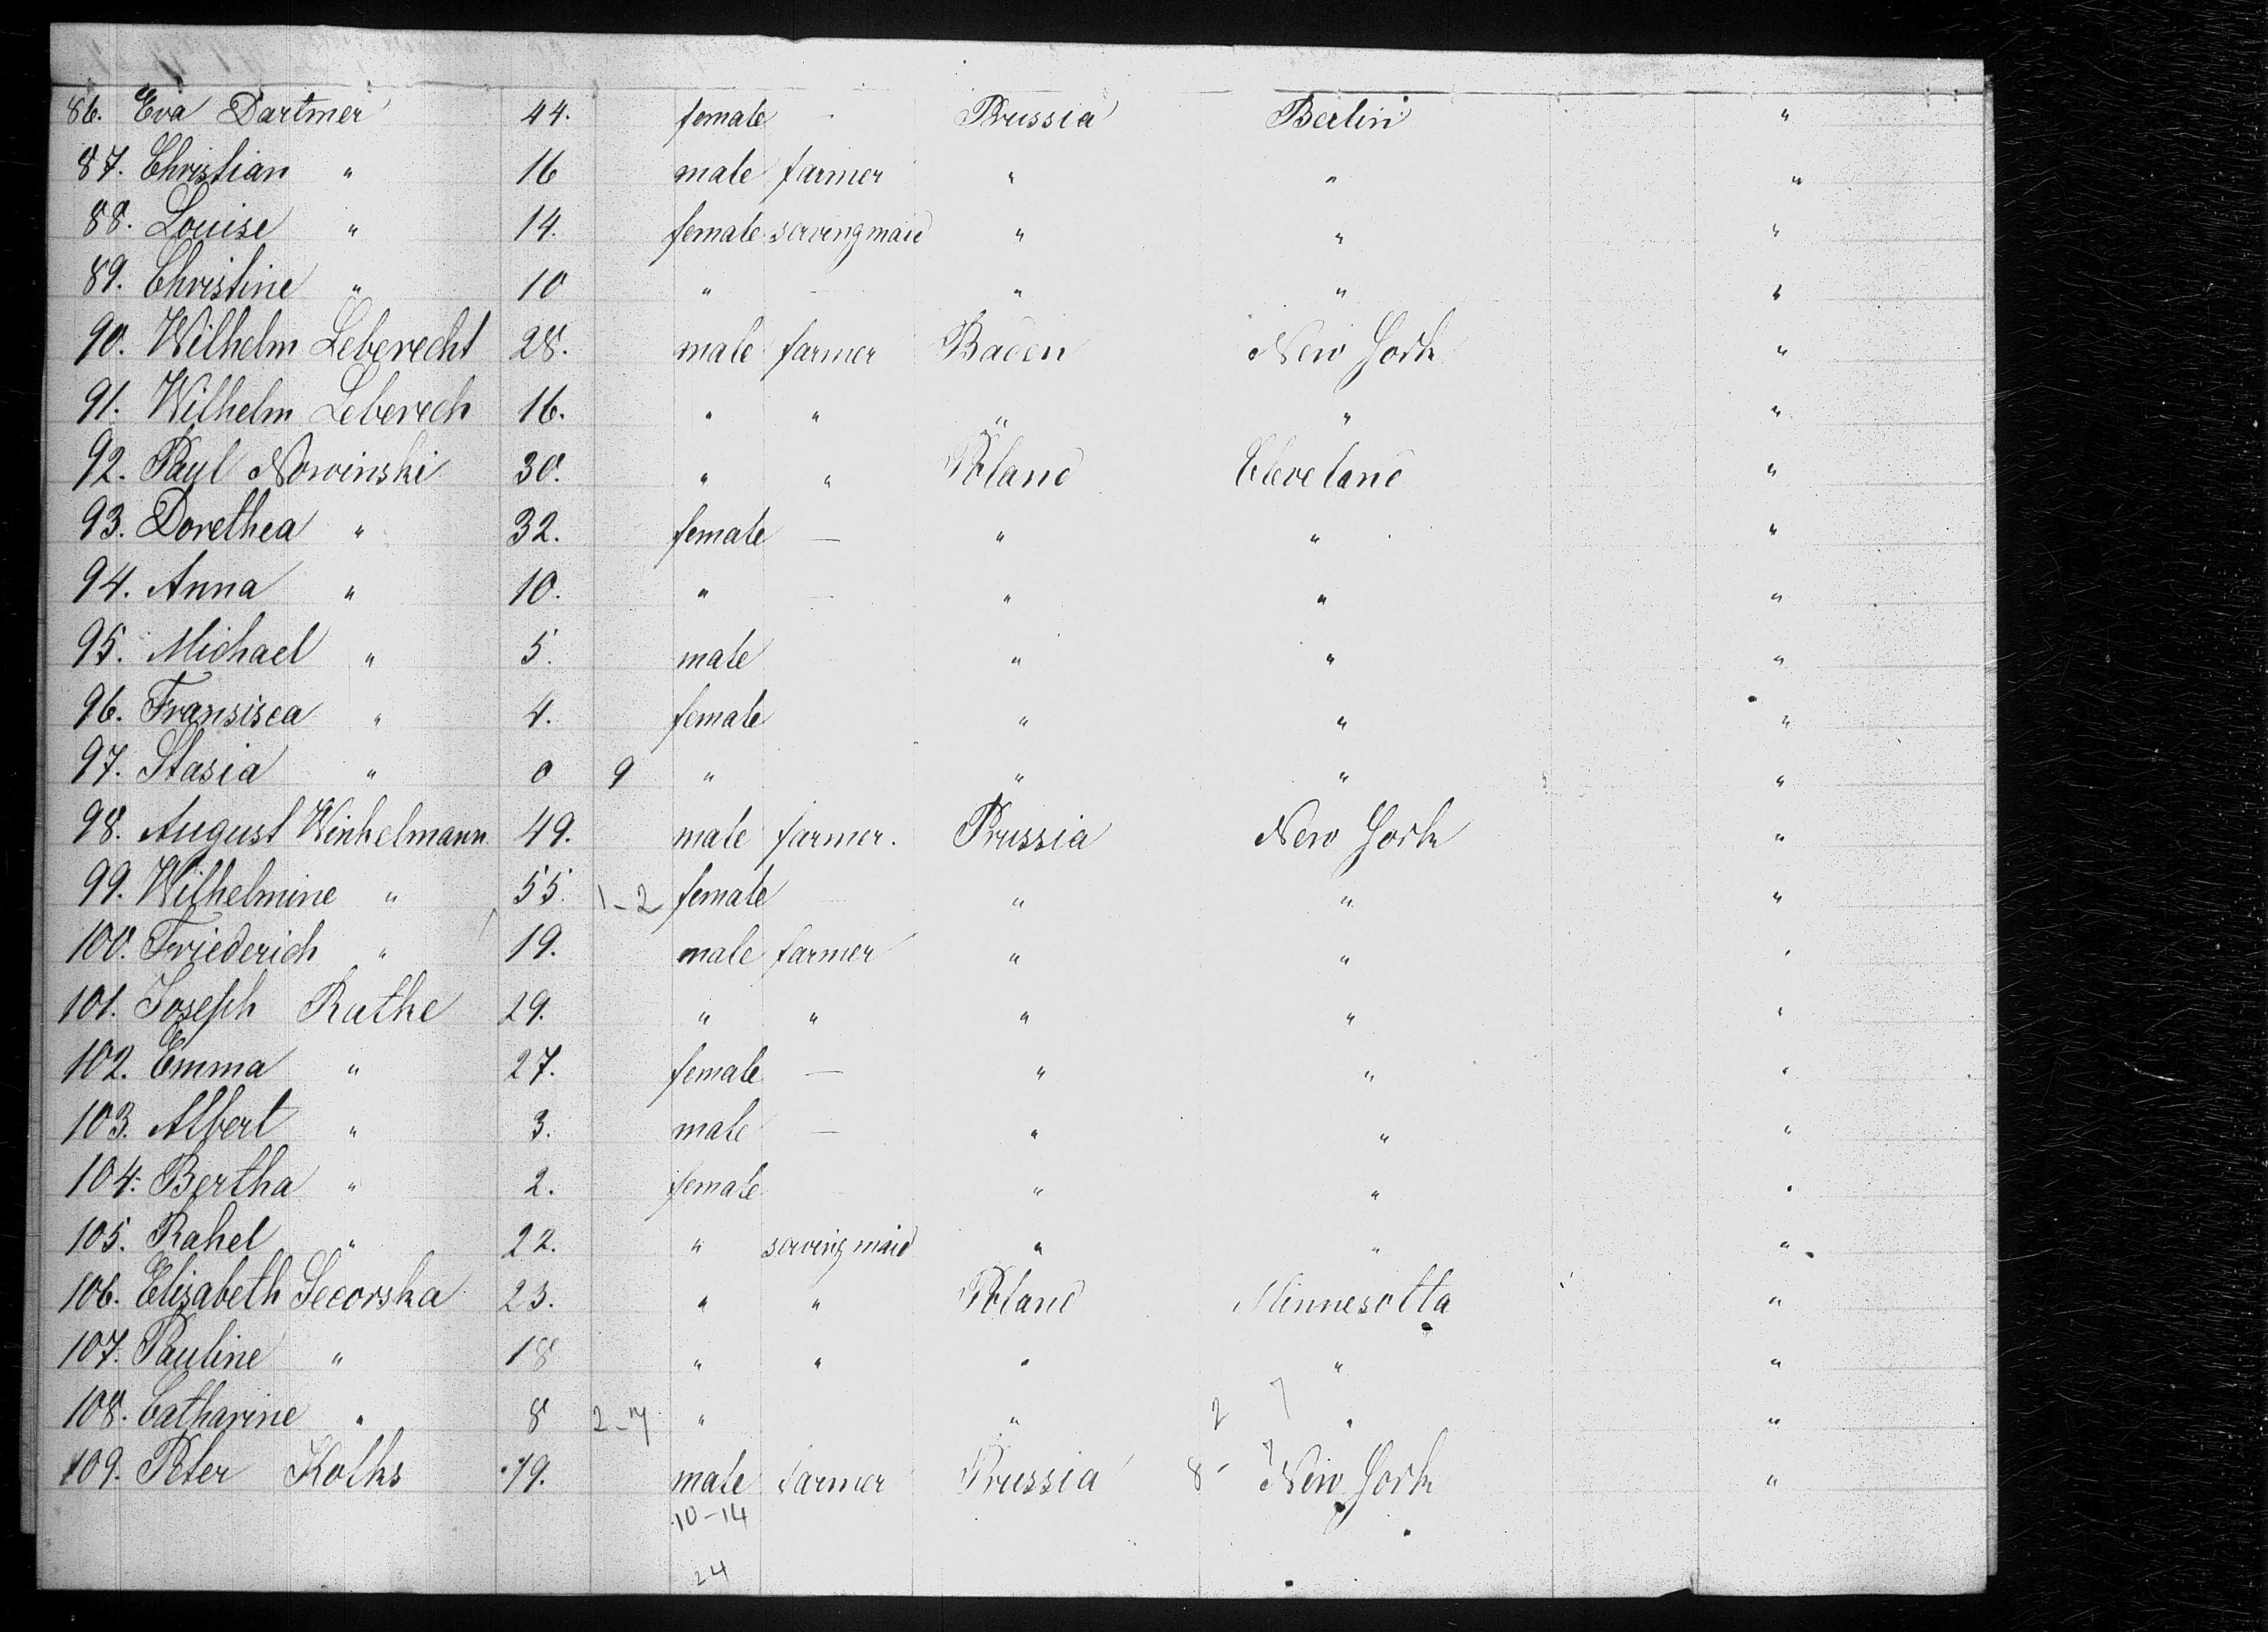 86. Eva Dartmer 44. female - Prussia Berlin "
87. Christian " 16 male farmer " " "
88. Louise " 14. female servingmaid " " "
89. Christine " 10 " — " " "
90. Wilhelm Leberecht 28. male farmer Baden New York "
91. Wilhelm Leberech 16. " " " " "
92. Paul Nowinski 30. " " Poland Cleveland "
93. Dorethea " 32. female — " " "
94. Anna " 10. " — " " "
95. Michael " 5. male " " "
96. Fransisca " 4. female " " "
97. Stasia " 0 9 " " " "
98. August Winkelmann 49. male farmer. Prussia New York "
99. Wilhelmine " 55. 1-2 female " " "
100. Friederich " 19. male farmer " " "
101. Joseph Rathe 29. " " " " "
102. Emma " 27. female — " " "
103. Albert " 3. male — " " "
104. Bertha " 2. female " " "
105. Rahel " 22. " serving maid " " "
106. Elisabeth Secorska 23. " " Poland Minnesotta "
107. Pauline " 18 " " " " "
108. Catharine " 8 2-7 " " 2 7 " "
109. Peter Kolks 19. male farmer Prussia 8- New York "
10-14
24